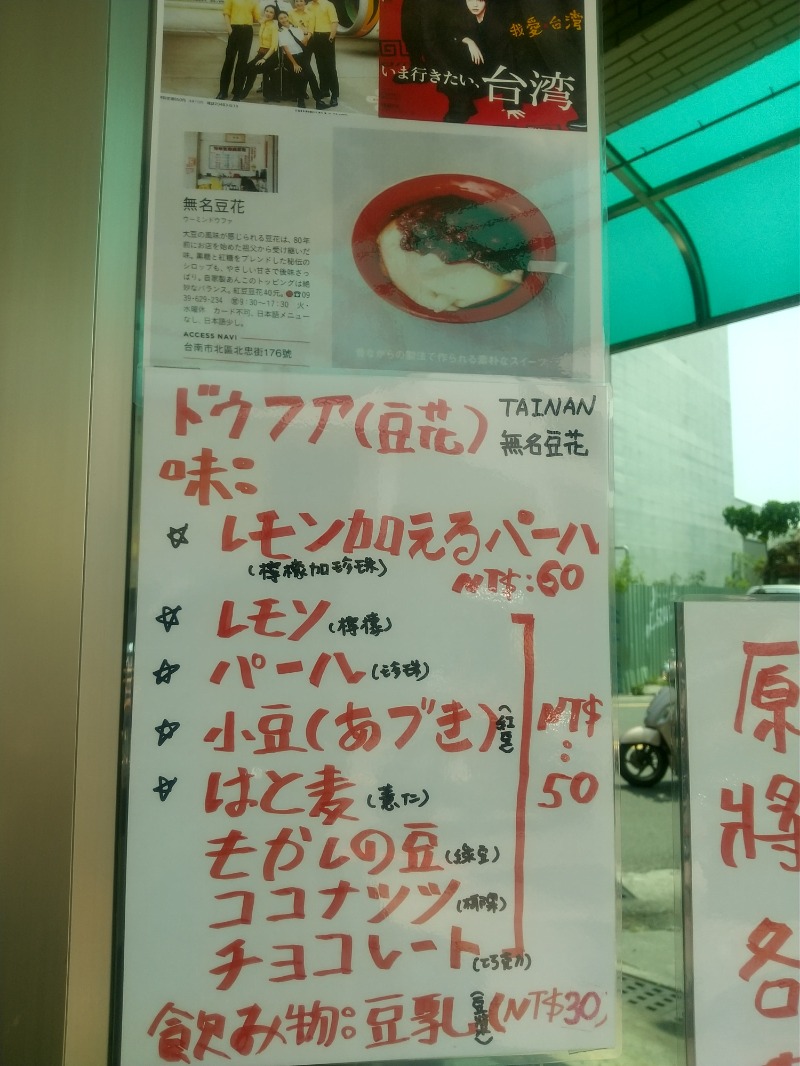 我愛台湾
いま行きたい、台湾
無名豆花
ウーミンドウファ
大豆の風味が感じられる豆花は、80年
前にお店を始めた祖父から受け継いだ
味。黒糖と紅糖をブレンドした秘伝の
シロップも、やさしい甘さで後味さっ
ぱり。自家製あんこのトッピングは絶
妙なバランス。紅豆豆花40元。☎09
39-629-234 9:30〜17:30 火・
水曜休 カード不可、日本語メニュー
なし、日本語少し。
ACCESS NAVI
台南市北區北忠街176號
昔ながらの製法で作られる素朴なスイーツ
ドウフア(豆花)
TAINAN
無名豆花
味:
☆ レモン加えるパール
(檸檬加珍珠)
NT$:60
☆ レモン(檸檬)
☆ パール(珍珠)
☆ 小豆(あづき)(紅豆)
☆ はと麦(薏仁)
もかしの豆(綠豆)
ココナッツ(椰果)
チョコレート(巧克力)
NT$
:
50
飲み物:豆乳(豆漿)(NT$30)
原
將
各